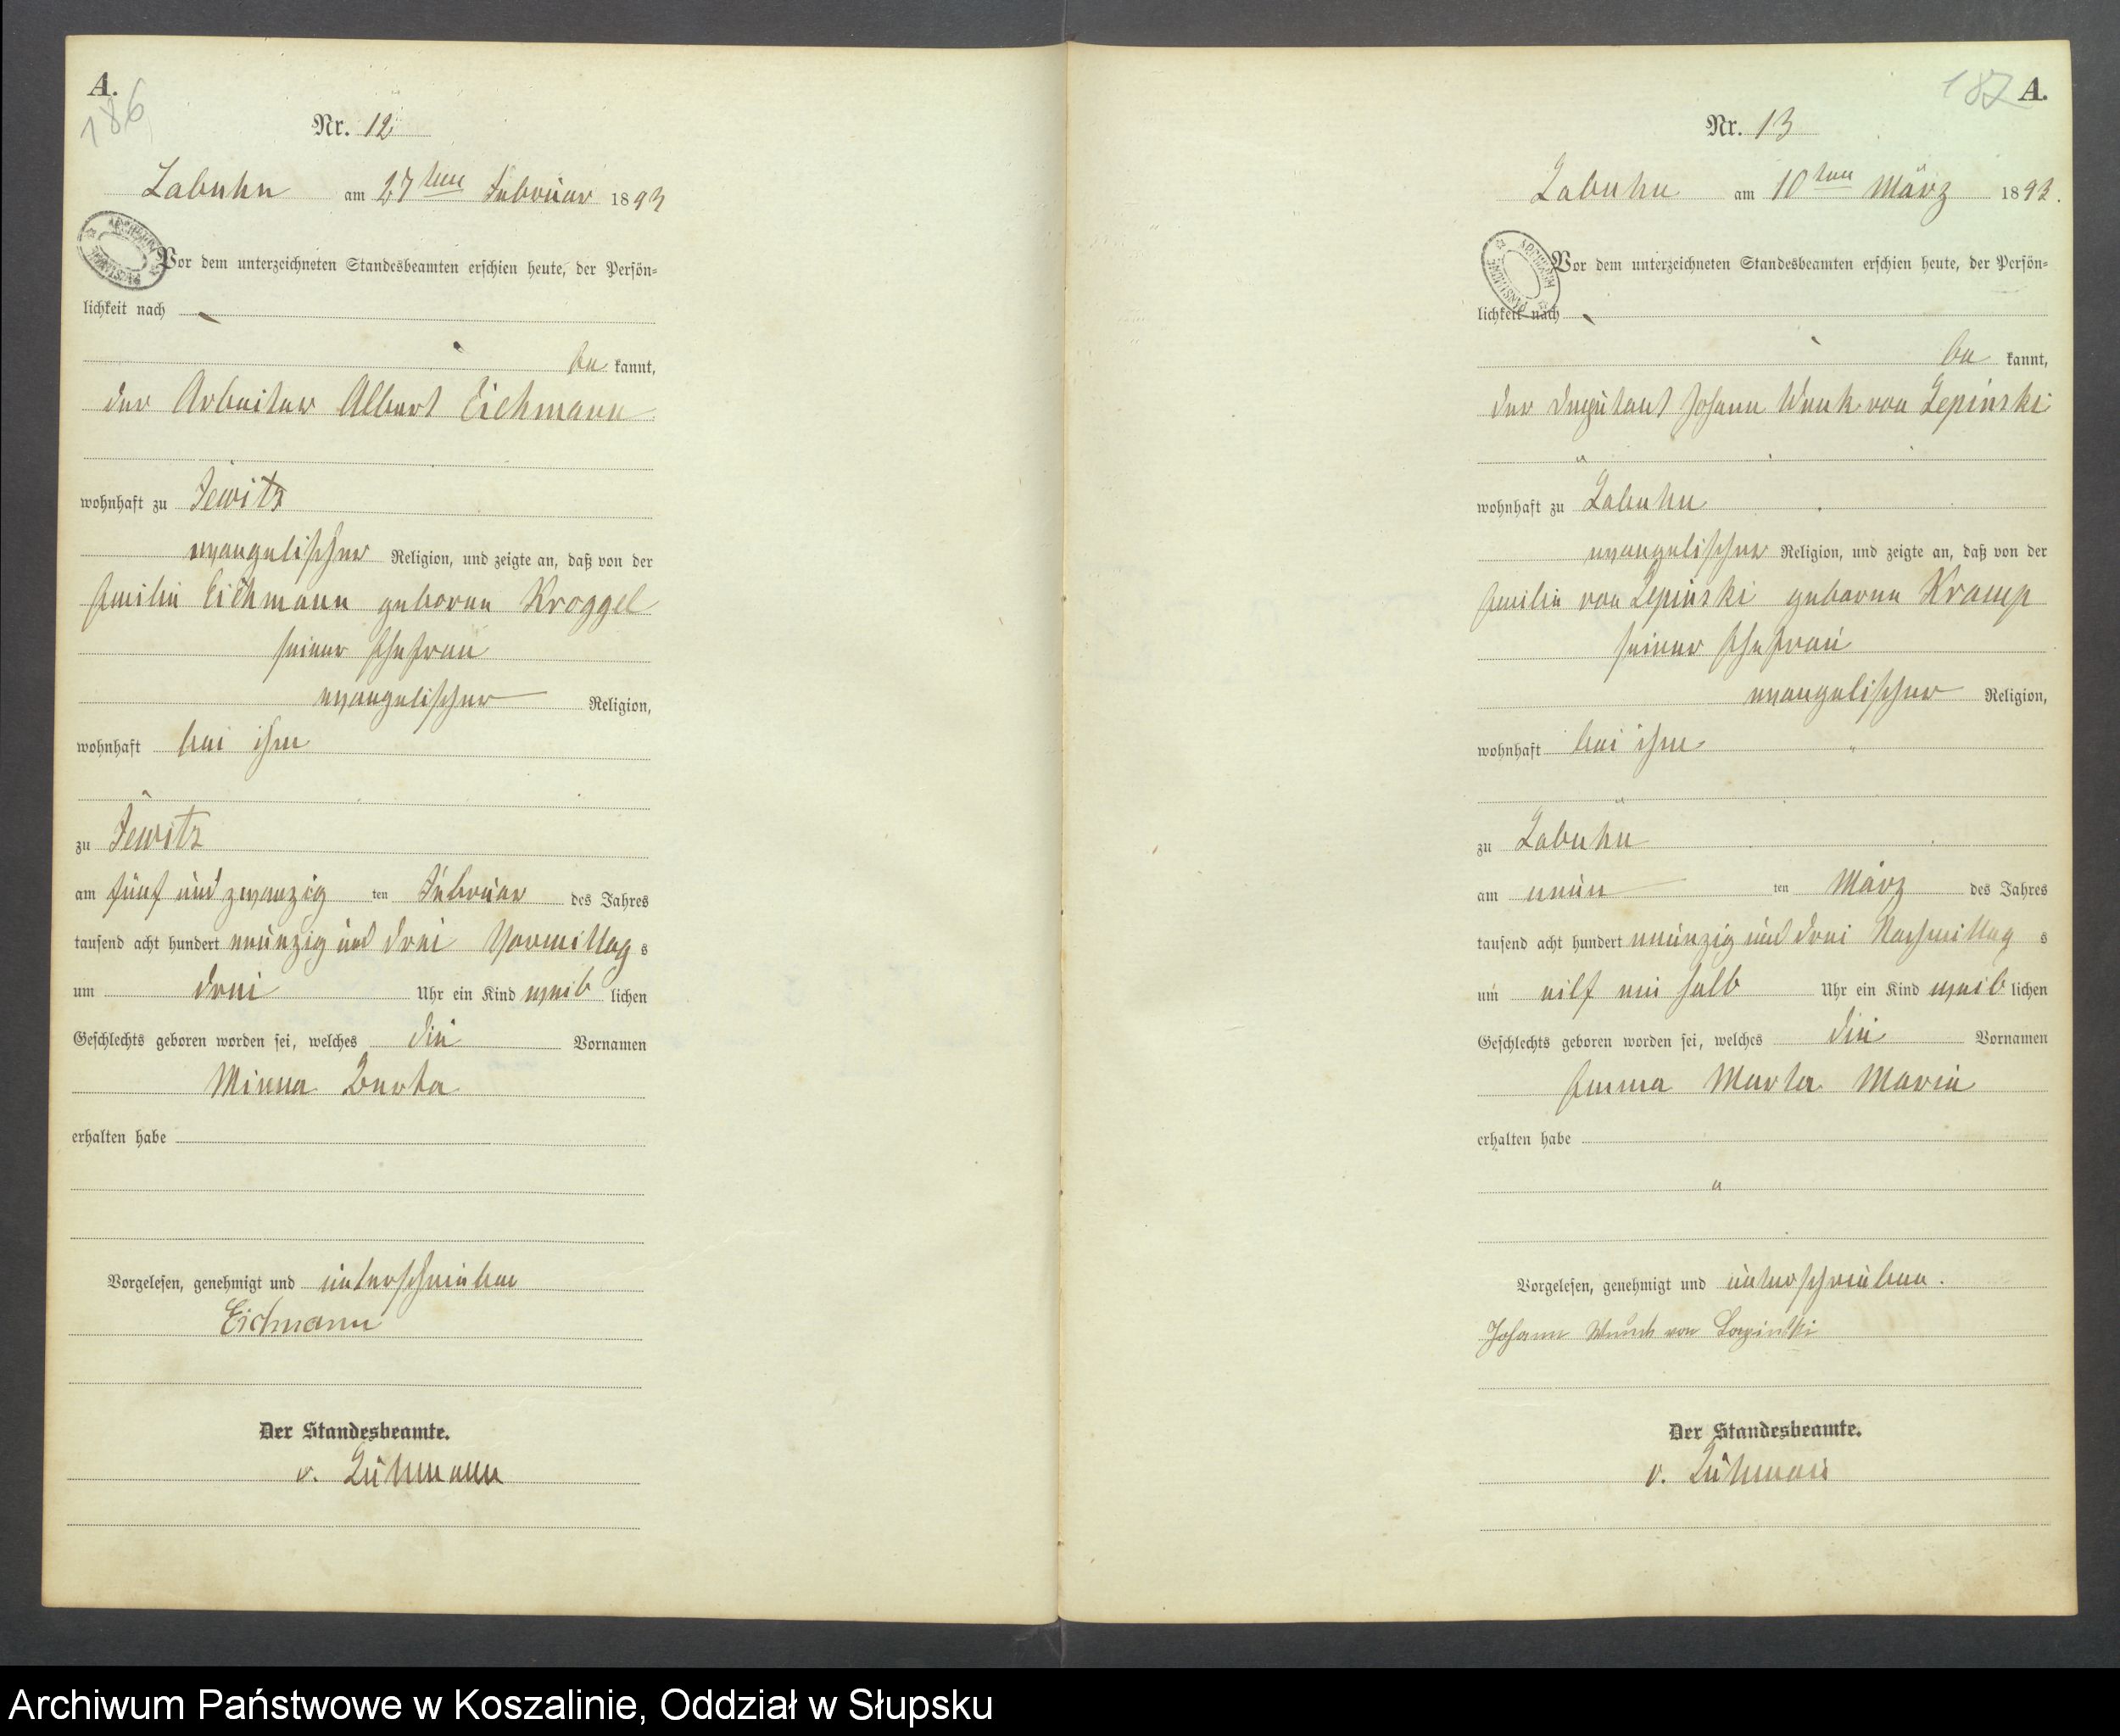 A.
186
Nr. 12
Labuhn am 27ten Februar 1893
Vor dem unterzeichneten Standesbeamten erschien heute, der Persön=
lichkeit nach
be kannt,
der Arbeiter Albert Eichmann
wohnhaft zu Jewitz
evangelischer Religion, und zeigte an, daß von der
Emilie Eichmann geborene Kroggel
seiner Ehefrau
evangelischer Religion,
wohnhaft bei ihm
zu Jewitz
am fünf und zwanzig ten Februar des Jahres
tausend acht hundert neunzig und drei Vormittag s
um drei Uhr ein Kind weib lichen
Geschlechts geboren worden sei, welches die Vornamen
Minna Berta
erhalten habe
Vorgelesen, genehmigt und unterschrieben
Eichmann
Der Standesbeamte.
v.
187 A.
Nr. 13
Labuhn am 10ten März 1893.
Vor dem unterzeichneten Standesbeamten erschien heute, der Persön=
lichkeit nach
be kannt,
der Deputant Johann Wnuk von Lepinski
wohnhaft zu Labuhn
evangelischer Religion, und zeigte an, daß von der
Emilie von Lepinski geborene Kramp
seiner Ehefrau
evangelischer Religion,
wohnhaft bei ihm
zu Labuhn
am neun ten März des Jahres
tausend acht hundert neunzig und drei Nachmittag s
um eilf ein halb Uhr ein Kind weib lichen
Geschlechts geboren worden sei, welches die Vornamen
Emma Marta Marie
erhalten habe
Vorgelesen, genehmigt und unterschrieben.
Johann von
Der Standesbeamte.
v.
Archiwum Państwowe w Koszalinie, Oddział w Słupsku